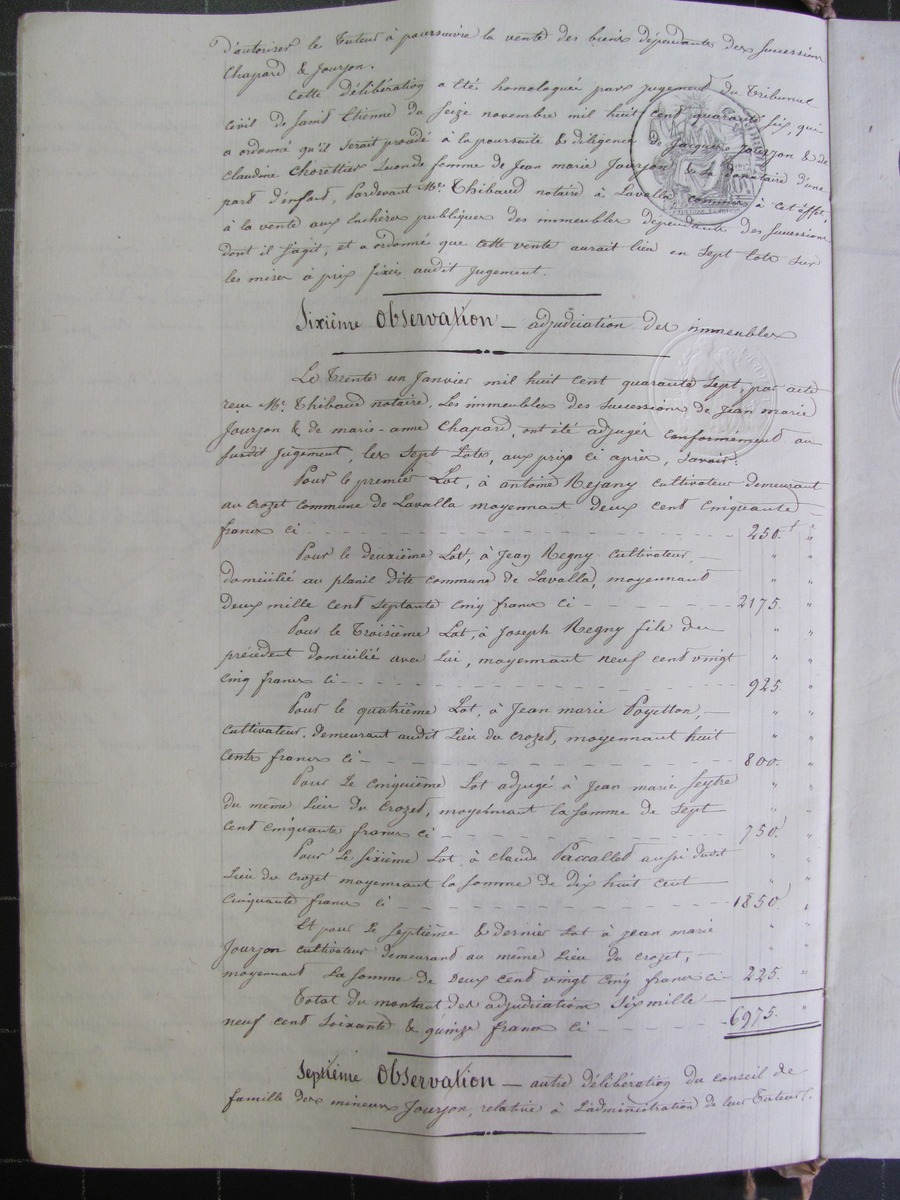 d'autoriser le Tuteur à poursuivre la vente des biens dépendants des successions
Chapard & Jourjon.
Cette délibération a été homologuée par jugement du Tribunal
Civil de Saint Etienne du Seize novembre mil huit cent quarante six, qui
a ordonné qu'il serait procédé à la poursuite & diligence de Jacques Jourjon & de
Claudine Chorettier seconde femme de Jean marie Jourjon & sa Donataire d'une
part d'enfant, Pardevant Me. Thibaud notaire à Lavalla, commis à cet effet,
à la vente aux Enchères publiques des immeubles dépendants des successions
dont il s'agit, et a ordonné que cette vente aurait lieu en Sept Lots sur
les mises à prix fixés audit Jugement.
Sixième Observation — adjudication des immeubles
Le Trente un Janvier mil huit cent quarante Sept, par acte
reçu Me. Thibaud notaire, Les immeubles des successions de Jean marie
Jourjon & de marie-anne Chapard, ont été adjugés conformément au
susdit Jugement, les Sept Lots, aux prix ci après, savoir:
Pour le premier Lot, à antoine Rejany cultivateur demeurant
au crozet commune de Lavalla moyennant deux cent Cinquante
francs ci 250.f "
Pour le deuxième Lot, à Jean Regny cultivateur,
domicilié au planil dite commune de Lavalla, moyennant
deux mille cent septante cinq francs ci 2175. "
Pour le Troisième Lot, à Joseph Regny fils du
précédent domicilié avec Lui, moyennant neuf cent vingt
cinq francs ci 925. "
Pour le quatrième Lot, à Jean marie Poyetton,
cultivateur, demeurant audit Lieu du crozet, moyennant huit
cents francs ci 800. "
Pour Le cinquième Lot adjugé à Jean marie Seytre
du même Lieu du Crozet, moyennant la somme de Sept
Cent Cinquante francs ci 750. "
Pour Le Sixième Lot à Claude Paccallet aussi dudit
Lieu du Crozet moyennant la somme de Dix huit cent
Cinquante francs ci 1850 "
Et pour Le Septième & dernier Lot à Jean marie
Jourjon cultivateur demeurant au même Lieu du Crozet,
moyennant La somme de Deux cent vingt Cinq francs ci 225. "
Total du montant des adjudications Six mille
neuf cent Soixante & quinze francs ci 6975. "
Septième Observation — autre délibération du conseil de
famille des mineurs Jourjon, relative à L'administration de leur Tuteur.